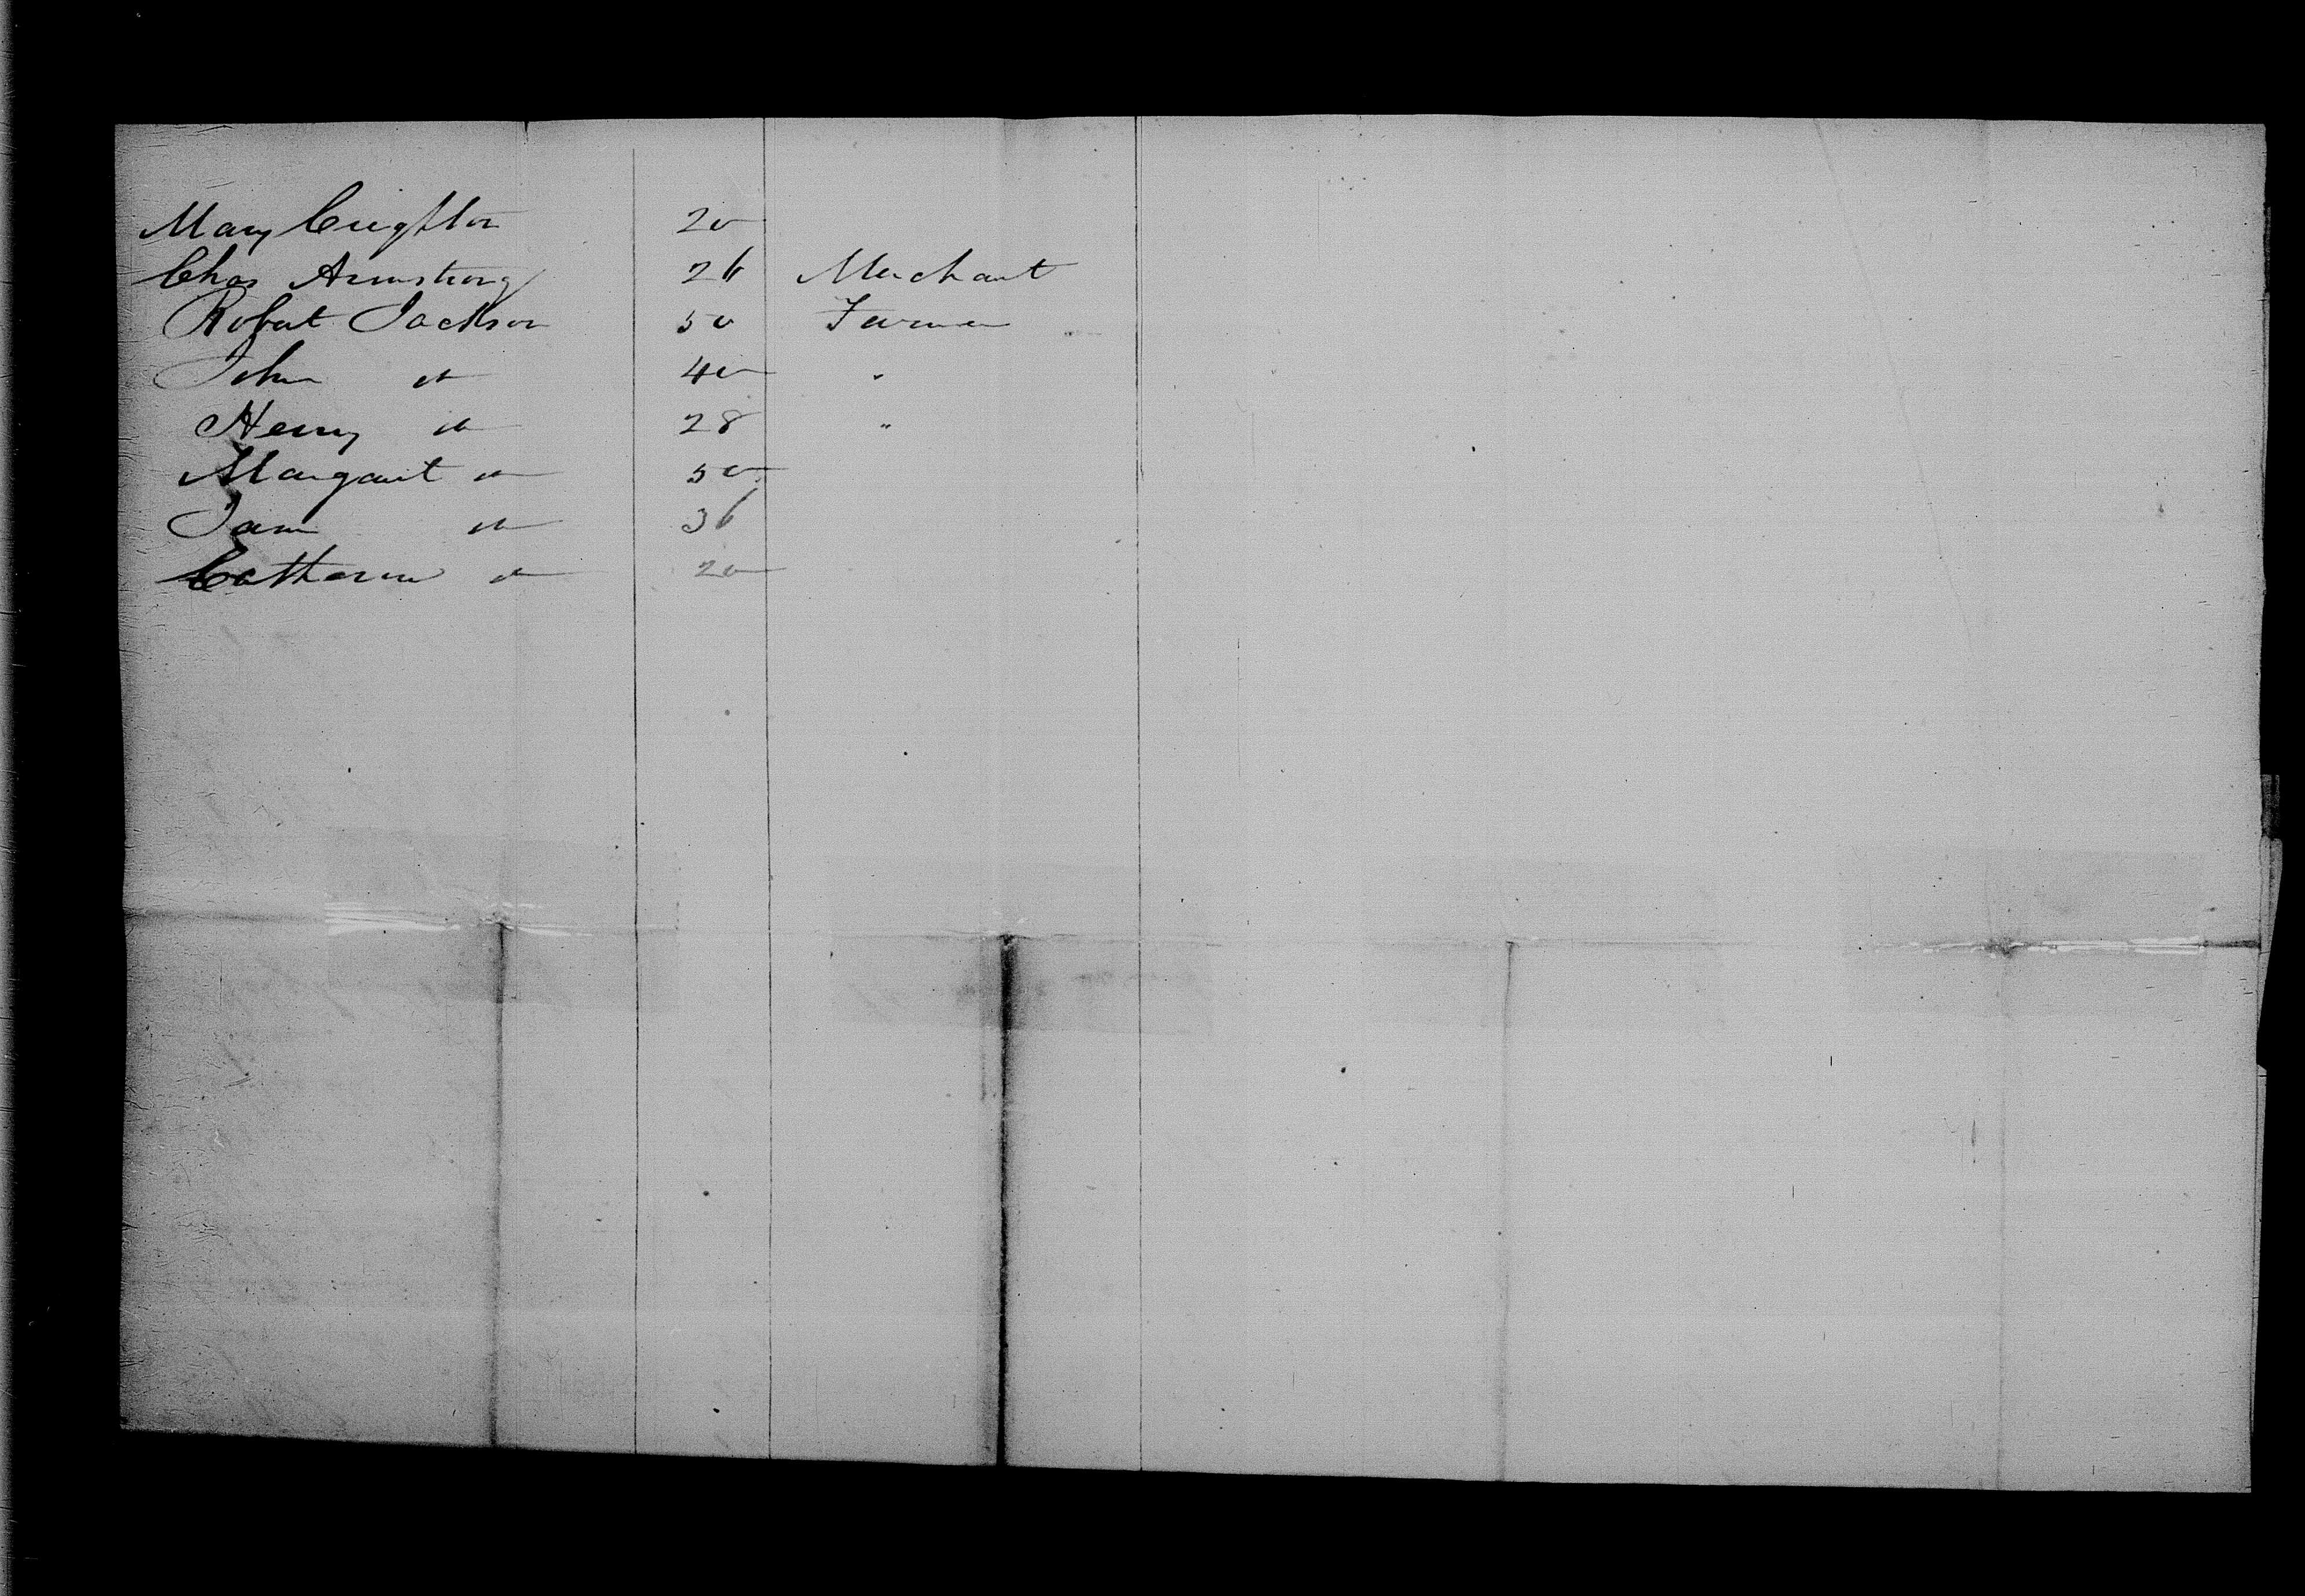 Mary Crighton 20
Chas Armstrong 26 Merchant
Robert Jackson 50 Farmer
John do 40 "
Henry do 28 "
Margaret do 50
Jane do 36
Catherine do 20